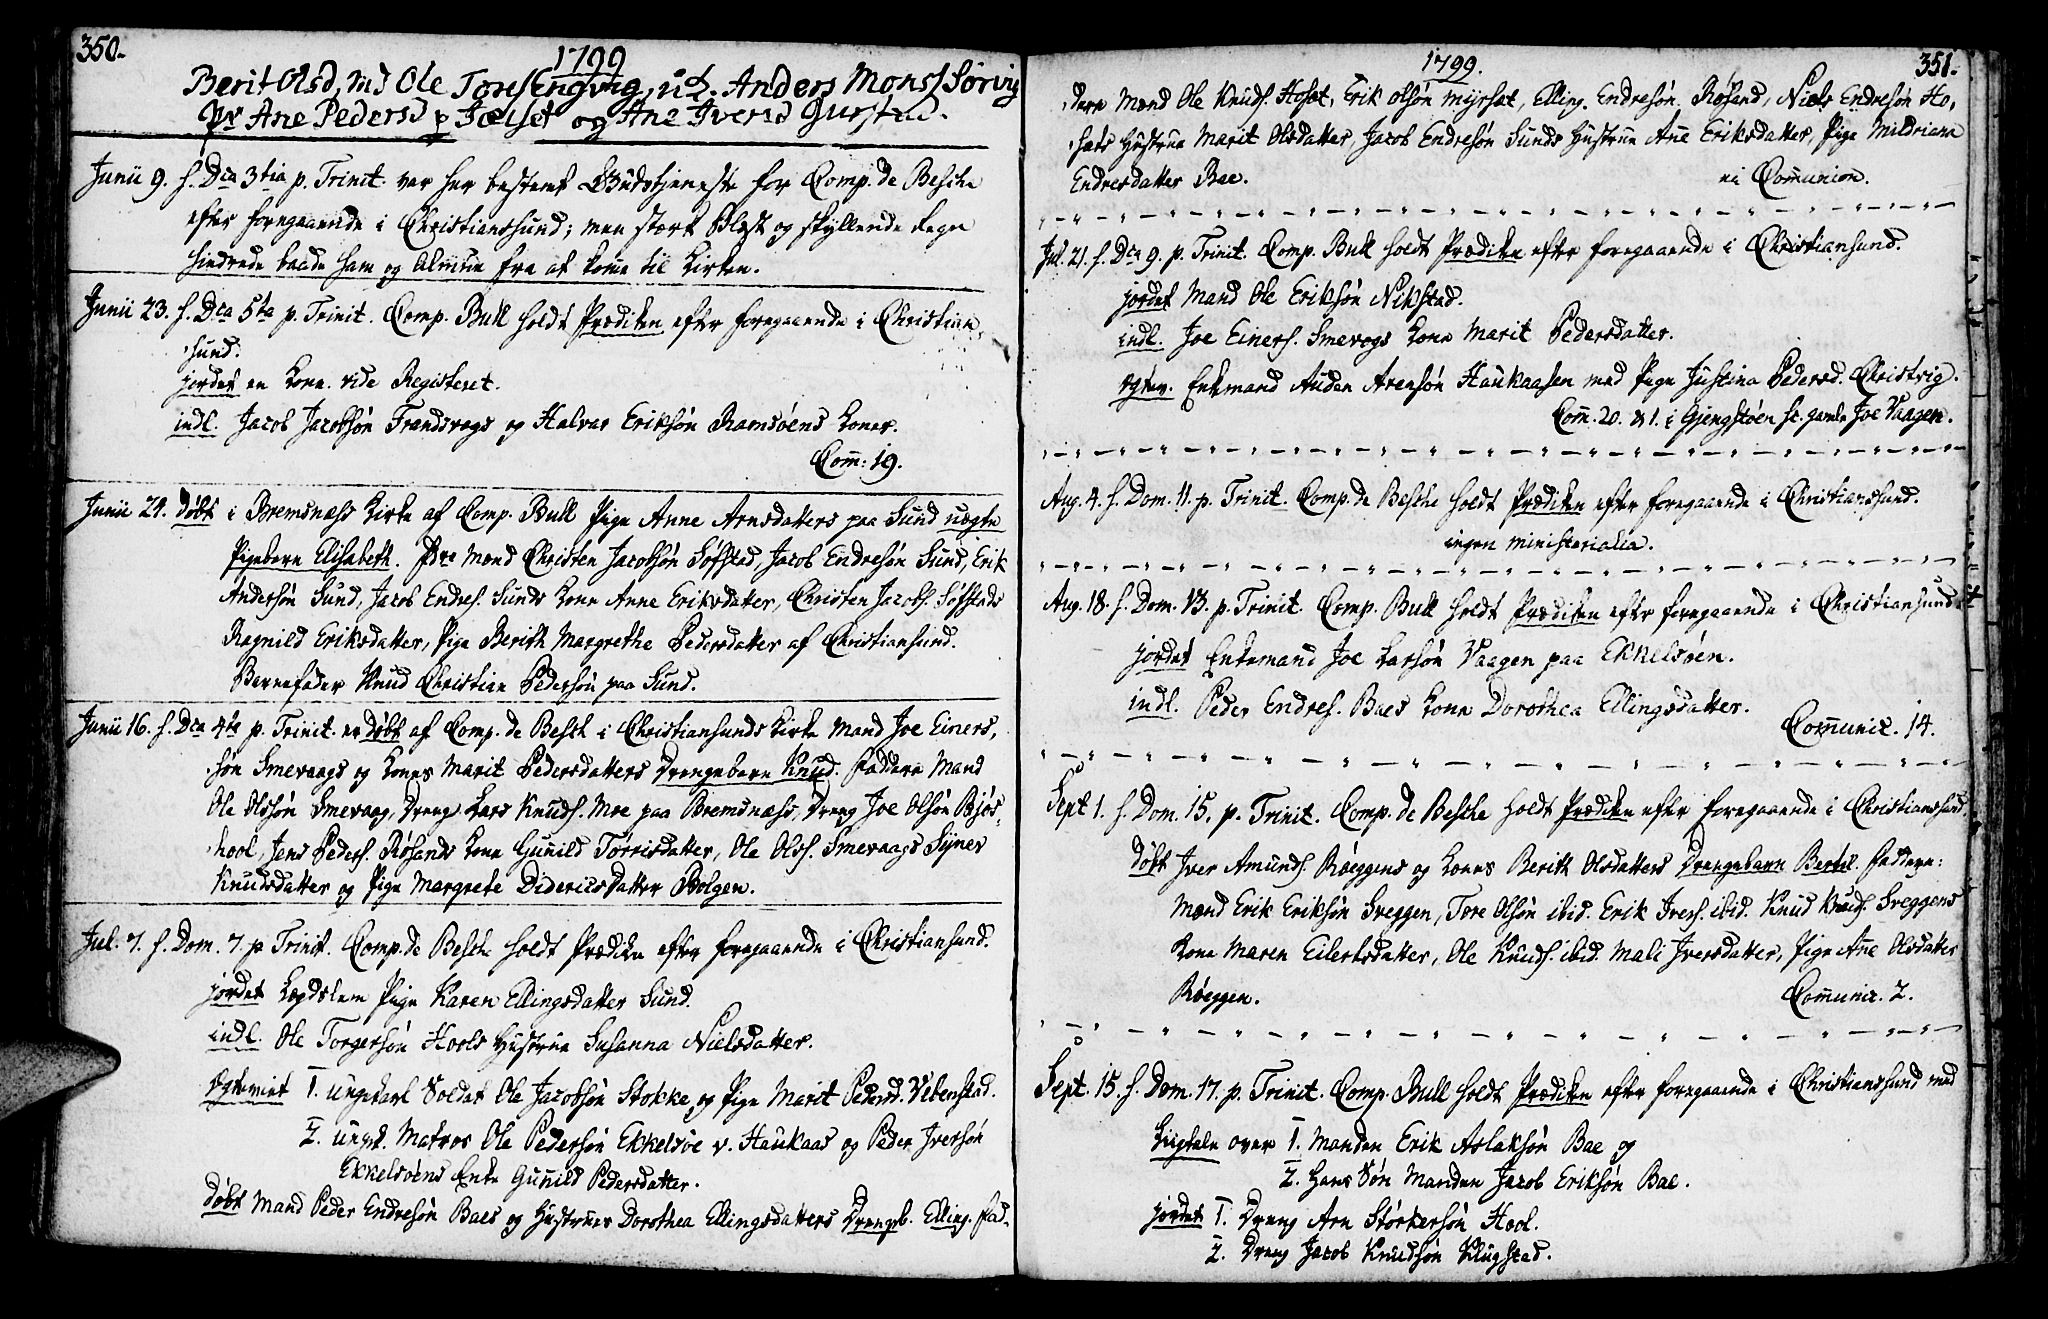 350.
1799
Berit Olsd, ved Ole Tores. Engvig, ud. Anders Mons. Søring
Pr Ane Pedersd p Jælset og Ane Ivers Gurstad.
Junii 9. f. Dca 3tia p. Trinit. var her bestemt Gudstjeneste for Comp. de Besche
efter foregaaende i Christianssund; men stærk Blæst og skyllende Regn
hindrede baade ham og Almuen fra at komme til Kirken.
Junii 23. f. Dca 5ta p. Trinit. Comp. Bull holdt Prædiken efter foregaaende i Christian
sund.
jordet en Kone vide Registeret.
indl. Jacob Jacobsøn Frændsvogs og Halvar Eriksøn Ramsøens Koner.
Com: 19.
Junii 24. døbt i Bremsnæss Kirke af Comp. Bull Pige Anne Arnsdatters paa Sund uægte
Pigebarn Elisabeth. Fdre Mænd Christen Jacobsøn Søfstad, Jacob Endresøn Sund, Erik
Andersøn Sund, Jacob Endres. Sunds Kone Anne Eriksdatter, Christen Jacobs. Søfstads
Ragnild Eriksdatter, Pige Berith Margrethe Pedersdatter af Christiansund.
Barnefader Knud Christian Pedersøn paa Sund.
Junii 16. f. Dca 4ta p. Trinit. er døbt af Comp. de Besch i Christiansunds Kirke Mand Joe Einers,
søn Smevaags og Kones Marit Pedersdatters Drengebarn Knud. Faddere Mand
Ole Olssøn Smevaag, Dreng Lars Knuds. Moe paa Bremsnæss, Dreng Joe Olsøn Bjør,
hool, Jens Peders. Røsands Kone Gunild Torrisdatter, Ole Olss. Smevaags Synev
Knudsdatter og Pige Margrete Didericsdatter Bolgen.
Jul. 7. f. Dom. 7. p Trinit. Comp. de Besche holdt Prædiken efter foregaaende i Christiansund.
jordet Lægdslem Pige Karen Ellingsdatter Sund.
indl. Ole Torgersøn Hools Hustrue Susanna Nielsdatter.
Egteviet 1. ungekarl Soldat Ole Jacobsøn Stokke og Pige Marit Pedersd. Vebenstad.
2. ungk. Matros Ole Pedersøn Ekkelsøe v. Haukaas og Peder Iversøn
Ekkelsøens Enke Gunild Pedersdatter.
døbt Mand Peder Endresøn Baes og Hustrues Dorothea Ellingsdatters Drengeb. Elling. Fad-
1799.
351.
dere Mænd Ole Knuds. Hoset, Erik Olsøn Myrset, Elling Endresøn Røsand, Niels Endresøn Ho,
sets Hustrue Marit Olsdatter, Jacob Endresøn Sunds Hustrue Ane Eriksdatter, Pige Mildriann
Endresdatter Bae.
ei Communion.
Jul. 21. f. Dca 9. p. Trinit. Comp. Bull holdt Prædiken efter foregaaende i Christiansund.
jordet Mand Ole Eriksøn Nikstad.
indl. Joe Einers. Smevogs Kone Marit Pedersdatter.
Egtev. Enkemand Auden Arensøn Haukaasen med Pige Justina Pedersd. Christvig.
Com. 20. & 1. i Gjengstøen sc. gamle Joe Vaagen.
Aug. 4. f. Dom. 11. p. Trinit. Comp. de Besche holdt Prædiken efter foregaaende i Christianssund.
ingen ministerialia.
Aug. 18. f. Dom. 13. p. Trinit. Comp. Bull holdt Prædiken efter foregaaende i Christiansund.
jordet Enkemand Joe Larsøn Vaagen paa Ekkelsøen.
indl. Peder Endres. Baes Kone Dorothea Ellingsdatter.
Communic. 14.
Sept. 1. f. Dom. 15. p. Trinit. Comp. de Besche holdt Prædiken efter foregaaende i Christianssund,
døbt Iver Amunds. Røeggens og Kones Berith Olsdatters Drengebarn Bertel. Faddere:
Mænd Erik Eriksøn Sveggen, Tore Olsøn ibid. Erik Ivers. ibid. Knud Knuds. Sveggens
Kone Maren Eilertsdatter, Ole Knuds. ibid. Mali Iversdatter, Pige Ane Olsdatter
Røeggen.
Communic. 2.
Sept. 15. f. Dom. 17. p. Trinit. Comp. Bull holdt Prædiken efter foregaaende i Christianssund med
Liigtale over 1. Manden Erik Aslaksøn Bae og
2. Hans Søn Manden Jacob Eriksøn Bae.
jordet 1. Dreng Arn Størkersøn Hool.
2. Dreng Jacob Knudsøn Klugstad.